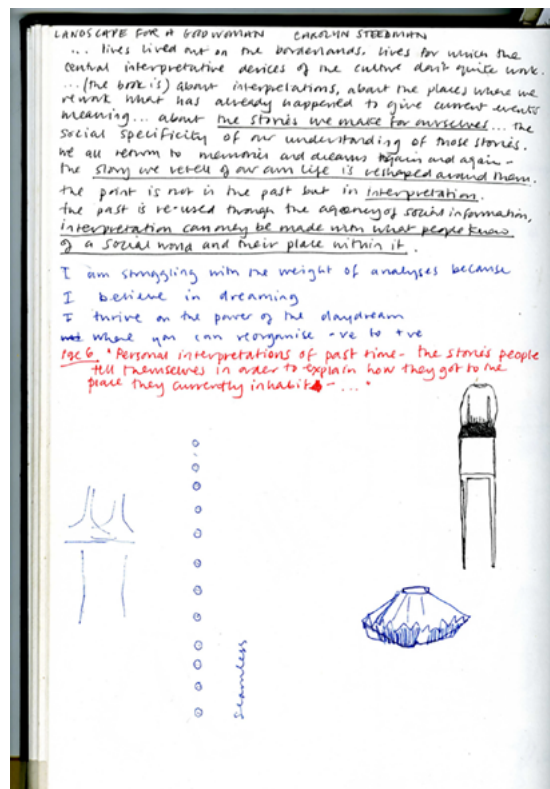 LANDSCAPE FOR A GOODWOMAN CAROLYN STEEDMAN
... lives lived out on the borderlands. lives for which the
central interpretative devices of the culture don't quite work.
...(the book is) about interpretations, about the places where we
rework what has already happened to give current events
meaning... about the stories we make for ourselves... the
social specificity of our understanding of those stories.
we all return to memories and dreams again and again -
the story we retell of our own life is reshaped around them.
the point is not in the past but in interpretation.
the past is re-used through the agency of social information,
interpretation can only be made with what people know
of a social world and their place within it.
I am struggling with the weight of analyses because
I believe in dreaming
I thrive on the power of the daydream
where you can reorganise -ve to +ve
pge 6. "Personal interpretations of past time - the stories people
tell themselves in order to explain how they got to the
place they currently inhabit - ..."
seamless